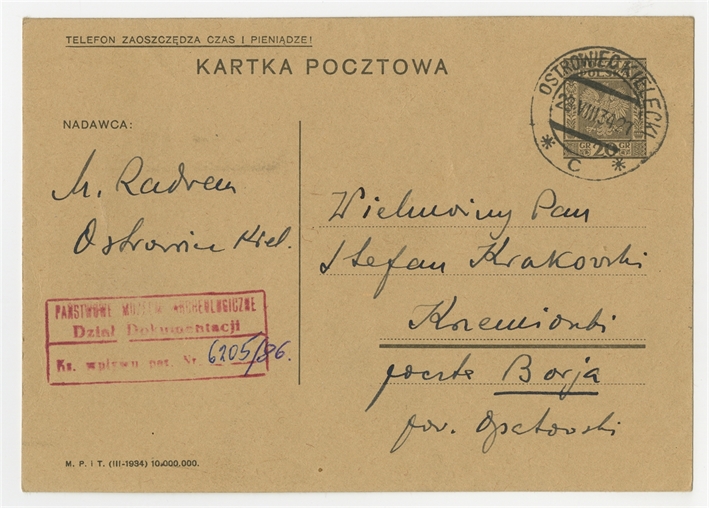 TELEFON ZAOSZCZĘDZA CZAS I PIENIĄDZE!
KARTKA POCZTOWA
OSTROWIEC KIELECKI
VIII 34 21
20
* C *
NADAWCA:
M. Radwan
Ostrowiec Kiel.
PAŃSTWOWE MUZEUM ARCHEOLOGICZNE
Dział Dokumentacji
Ks. wpływu not. Nr. 6205/86.
Wielmożny Pan
Stefan Krakowski
Krzemionki
poczta Borja
pow. Opatowski
M. P. i T. (III-1934) 10.000.000.